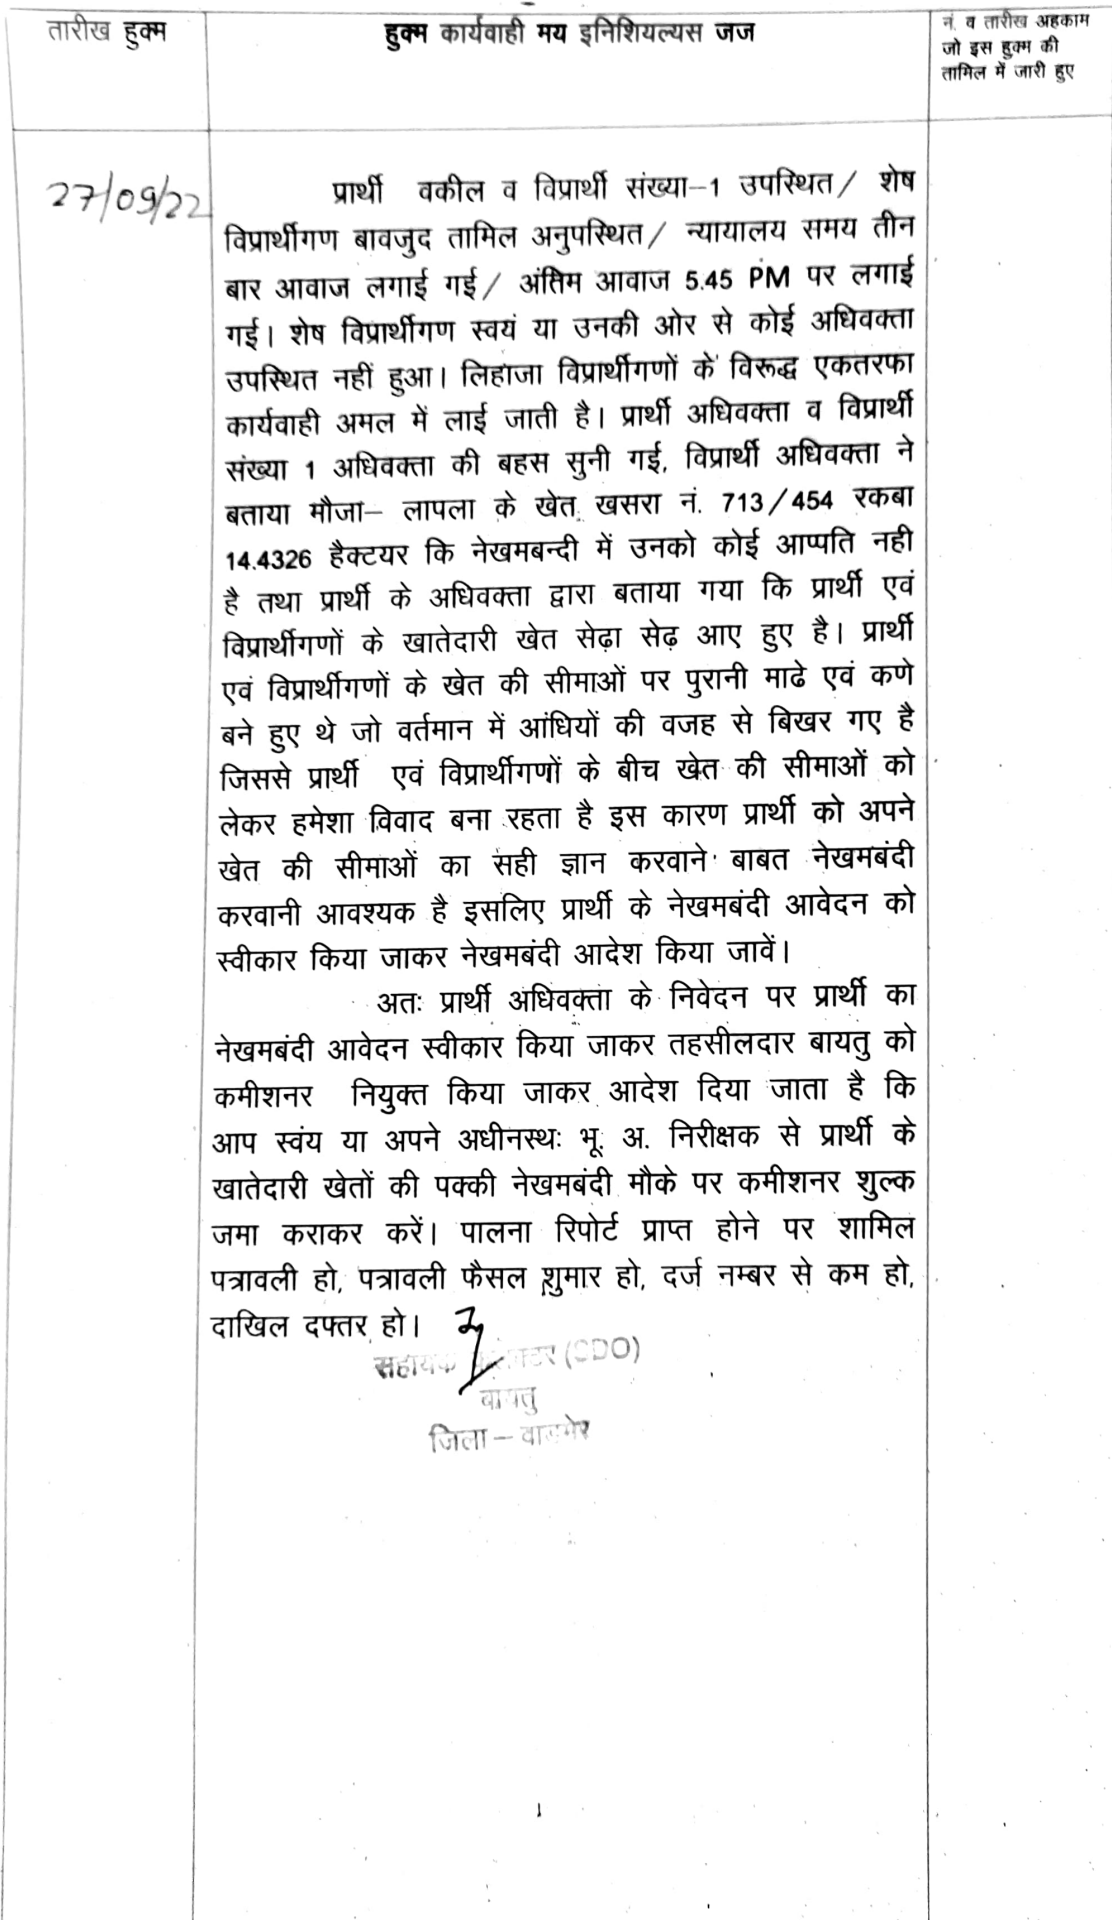 तारीख हुक्म
हुक्म कार्यवाही मय इनिशियल्यस जज
नं. व तारीख अहकाम
जो इस हुक्म की
तामिल में जारी हुए
27/09/22
प्रार्थी वकील व विप्रार्थी संख्या-1 उपस्थित/ शेष
विप्रार्थीगण बावजुद तामिल अनुपस्थित/ न्यायालय समय तीन
बार आवाज लगाई गई/ अंतिम आवाज 5.45 PM पर लगाई
गई। शेष विप्रार्थीगण स्वयं या उनकी ओर से कोई अधिवक्ता
उपस्थित नहीं हुआ। लिहाजा विप्रार्थीगणों के विरूद्ध एकतरफा
कार्यवाही अमल में लाई जाती है। प्रार्थी अधिवक्ता व विप्रार्थी
संख्या 1 अधिवक्ता की बहस सुनी गई, विप्रार्थी अधिवक्ता ने
बताया मौजा- लापला के खेत खसरा नं. 713/454 रकबा
14.4326 हैक्टयर कि नेखमबन्दी में उनको कोई आप्पति नही
है तथा प्रार्थी के अधिवक्ता द्वारा बताया गया कि प्रार्थी एवं
विप्रार्थीगणों के खातेदारी खेत सेढ़ा सेढ़ आए हुए है। प्रार्थी
एवं विप्रार्थीगणों के खेत की सीमाओं पर पुरानी माढे एवं कणे
बने हुए थे जो वर्तमान में आंधियों की वजह से बिखर गए है
जिससे प्रार्थी एवं विप्रार्थीगणों के बीच खेत की सीमाओं को
लेकर हमेशा विवाद बना रहता है इस कारण प्रार्थी को अपने
खेत की सीमाओं का सही ज्ञान करवाने बाबत नेखमबंदी
करवानी आवश्यक है इसलिए प्रार्थी के नेखमबंदी आवेदन को
स्वीकार किया जाकर नेखमबंदी आदेश किया जावें।
अतः प्रार्थी अधिवक्ता के निवेदन पर प्रार्थी का
नेखमबंदी आवेदन स्वीकार किया जाकर तहसीलदार बायतु को
कमीशनर नियुक्त किया जाकर आदेश दिया जाता है कि
आप स्वंय या अपने अधीनस्थः भू. अ. निरीक्षक से प्रार्थी के
खातेदारी खेतों की पक्की नेखमबंदी मौके पर कमीशनर शुल्क
जमा कराकर करें। पालना रिपोर्ट प्राप्त होने पर शामिल
पत्रावली हो, पत्रावली फैसल शुमार हो, दर्ज नम्बर से कम हो,
दाखिल दफ्तर हो।
सहायक (SDO)
बायतु
जिला - बाडमेर